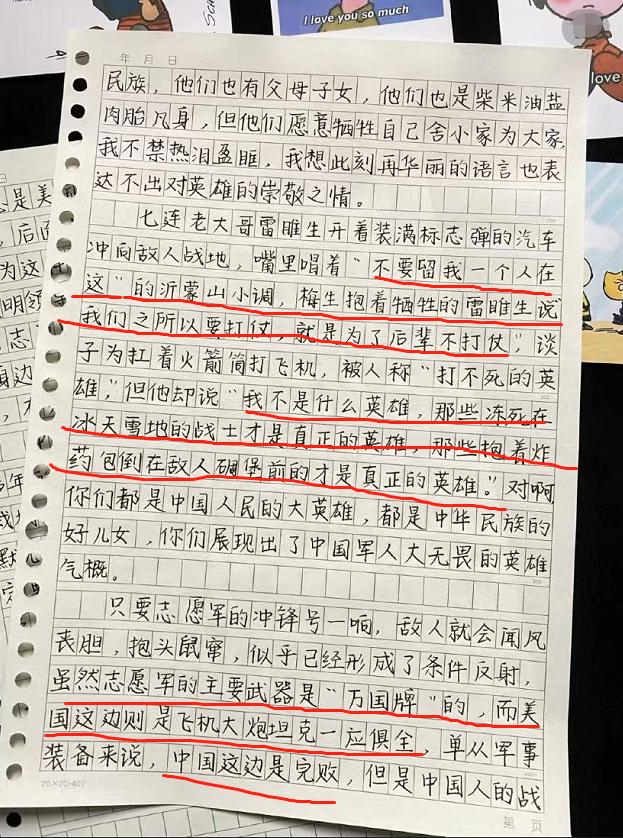 I love you so much
love
年 月 日
民族，他们也有父母子女，他们也是柴米油盐
肉胎凡身，但他们愿意牺牲自己舍小家为大家，
我不禁热泪盈眶，我想此刻再华丽的语言也表
达不出对英雄的崇敬之情。
七连老大哥雷睢生开着装满标志弹的汽车
冲向敌人战地，嘴里唱着“不要留我一个人在
这”的沂蒙山小调，梅生抱着牺牲的雷睢生说
“我们之所以要打仗，就是为了后辈不打仗”，谈
子为扛着火箭筒打飞机，被人称“打不死的英
雄，”但他却说“我不是什么英雄，那些冻死在
冰天雪地的战士才是真正的英雄，那些抱着炸
药包倒在敌人碉堡前的才是真正的英雄。”对啊
你们都是中国人民的大英雄，都是中华民族的
好儿女，你们展现出了中国军人大无畏的英雄
气概。
只要志愿军的冲锋号一响，敌人就会闻风
丧胆，抱头鼠窜，似乎已经形成了条件反射，
虽然志愿军的主要武器是“万国牌”的，而美
国这边则是飞机大炮坦克一应俱全，单从军事
装备来说，中国这边是完败，但是中国人的战
20×20=400
第 页